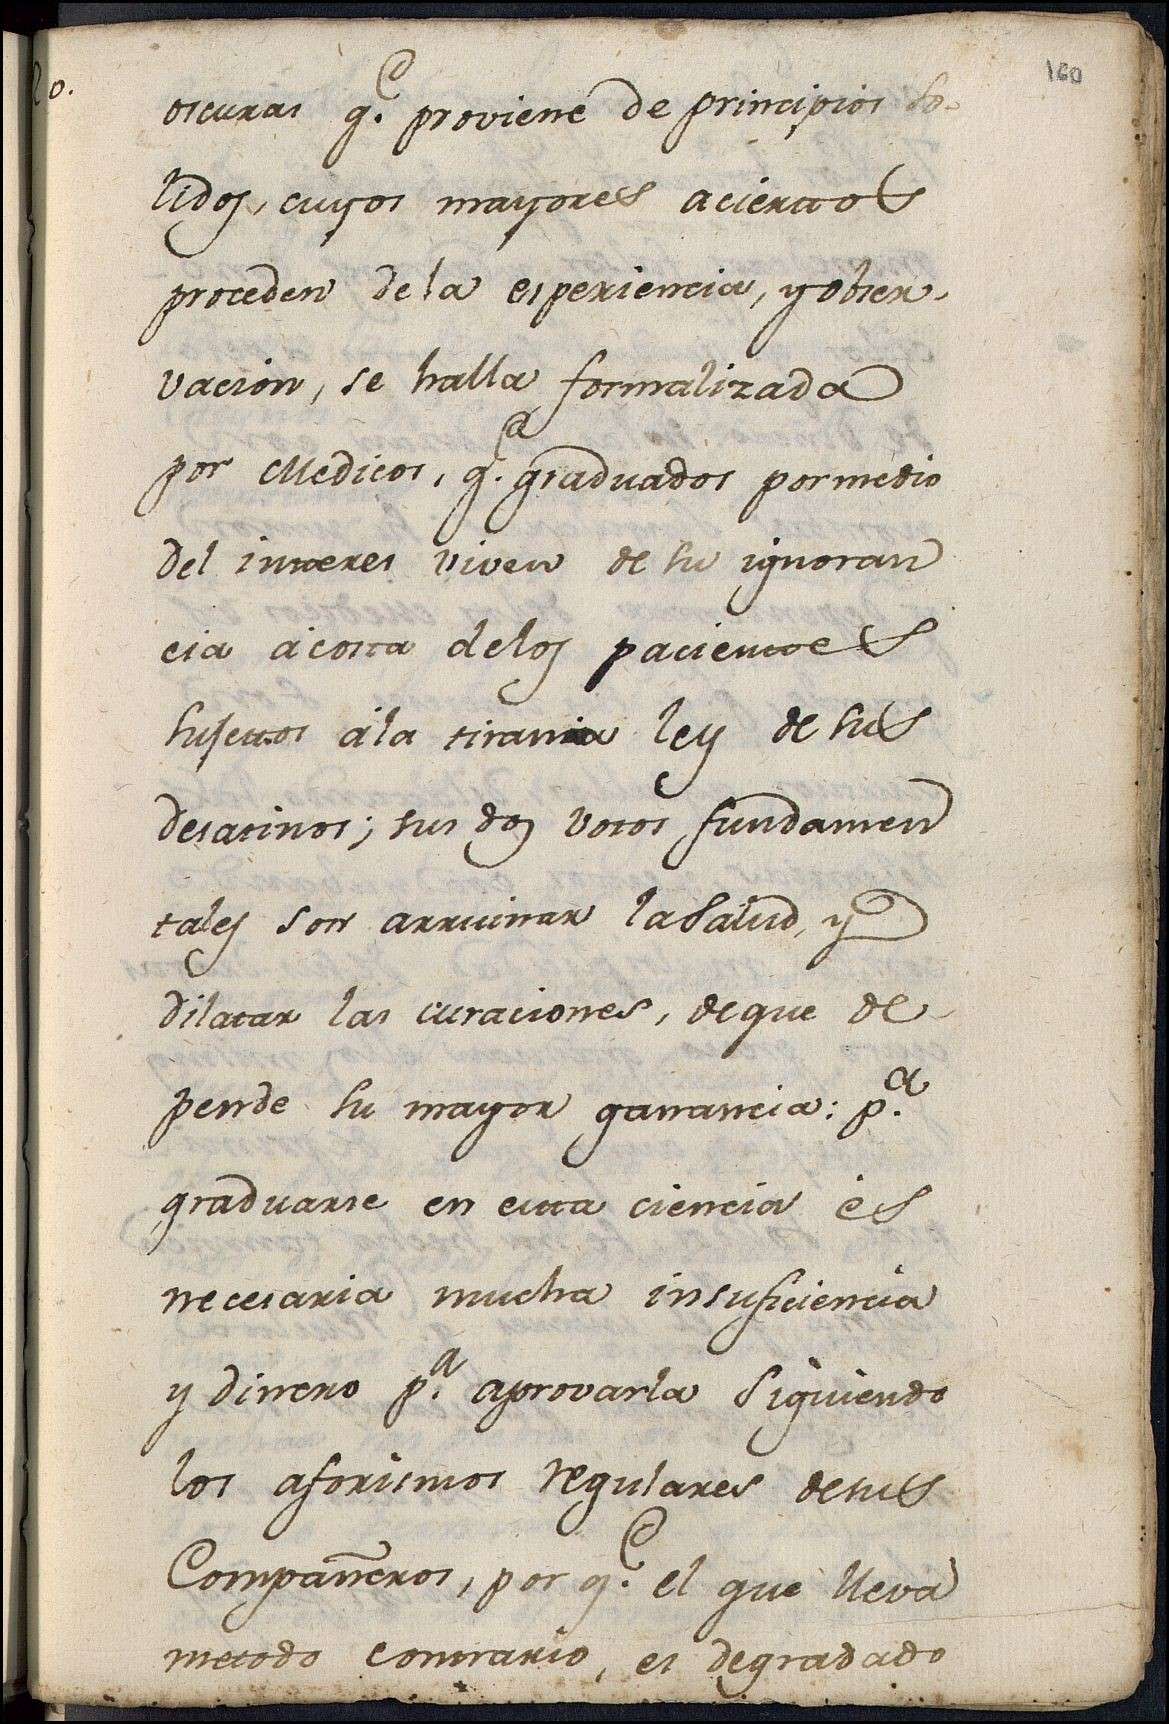 160
oscuras q.e proviene de principios so-
lidos, cuyos mayores aciertos
proceden dela esperiencia, y obser-
vacion, se halla formalizada
por Medicos, q.e graduados por medio
del interes viven de su ignoran
cia á costa delos pacientes
sujetos ála tirania ley de sus
desatinos; sus dos votos fundamen
tales son arruinar la Salud, y
dilatar las curaciones, de que de
pende su mayor ganancia: p.a
graduarse en esta ciencia és
necesaria mucha insuficiencia
y dinero p.a aprovarla Siguiendo
los aforismos regulares de sus
Compañeros, por q.e el que lleva
metodo contrario, es degradado